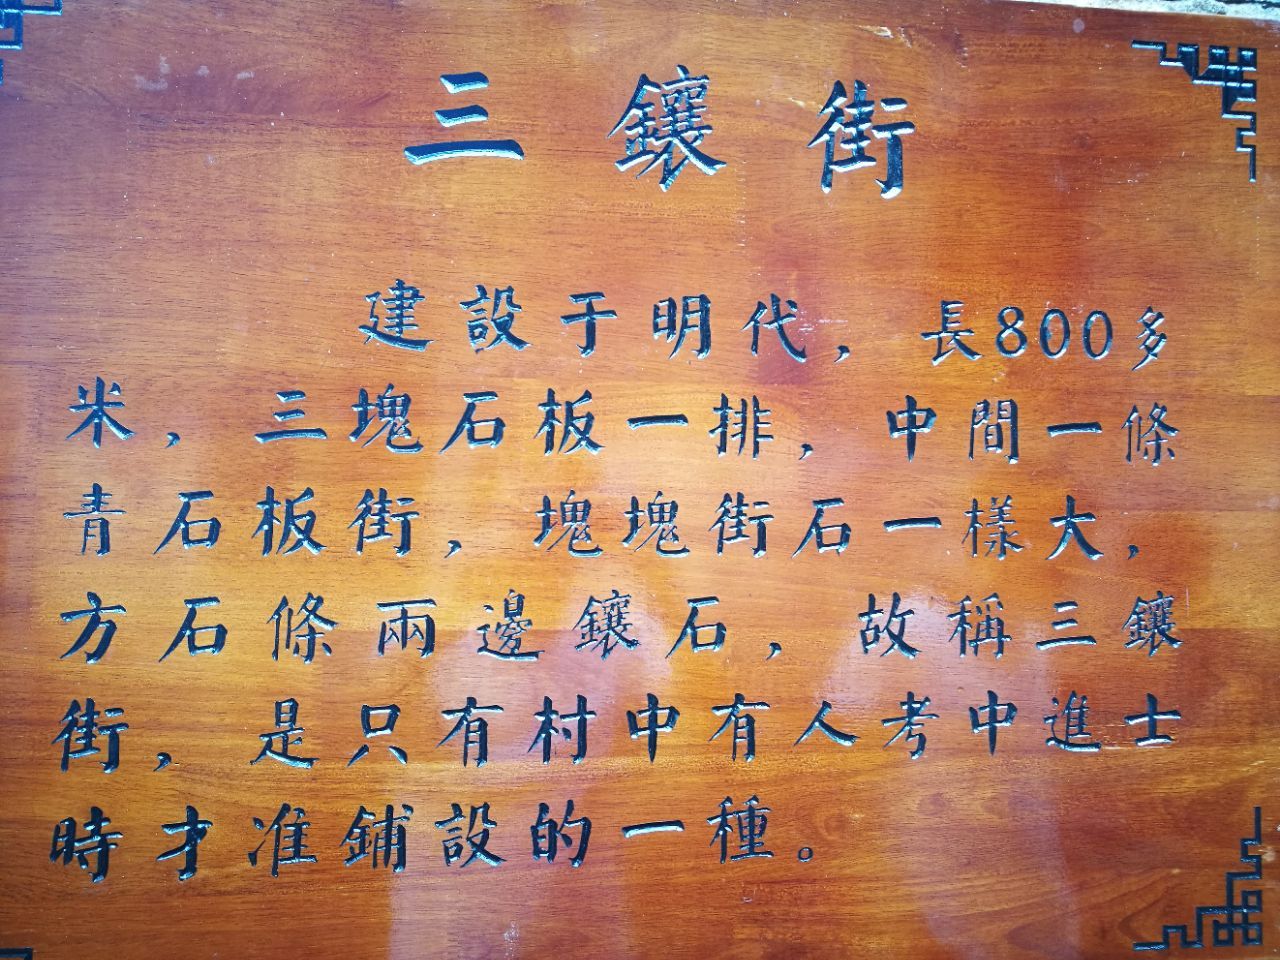 三鑲街
建設于明代，長800多
米，三塊石板一排，中間一條
青石板街，塊塊街石一樣大，
方石條兩邊鑲石，故稱三鑲
街，是只有村中有人考中進士
時才准鋪設的一種。